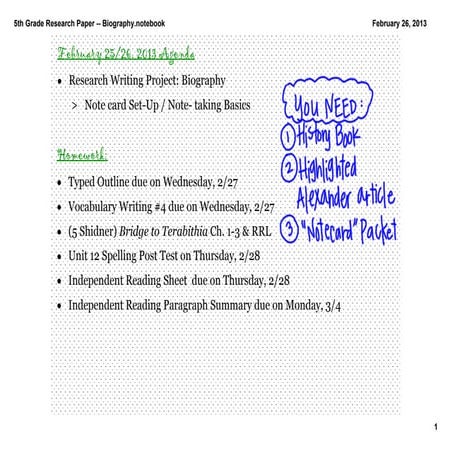 5th Grade Research Paper -- Biography.notebook
February 26, 2013
February 25/26, 2013 Agenda
• Research Writing Project: Biography
> Note card Set-Up / Note- taking Basics
Homework:
• Typed Outline due on Wednesday, 2/27
• Vocabulary Writing #4 due on Wednesday, 2/27
• (5 Shidner) Bridge to Terabithia Ch. 1-3 & RRL
• Unit 12 Spelling Post Test on Thursday, 2/28
• Independent Reading Sheet due on Thursday, 2/28
• Independent Reading Paragraph Summary due on Monday, 3/4
YOU NEED:
① History Book
② Highlighted
Alexander article
③ "Notecard" Packet
1